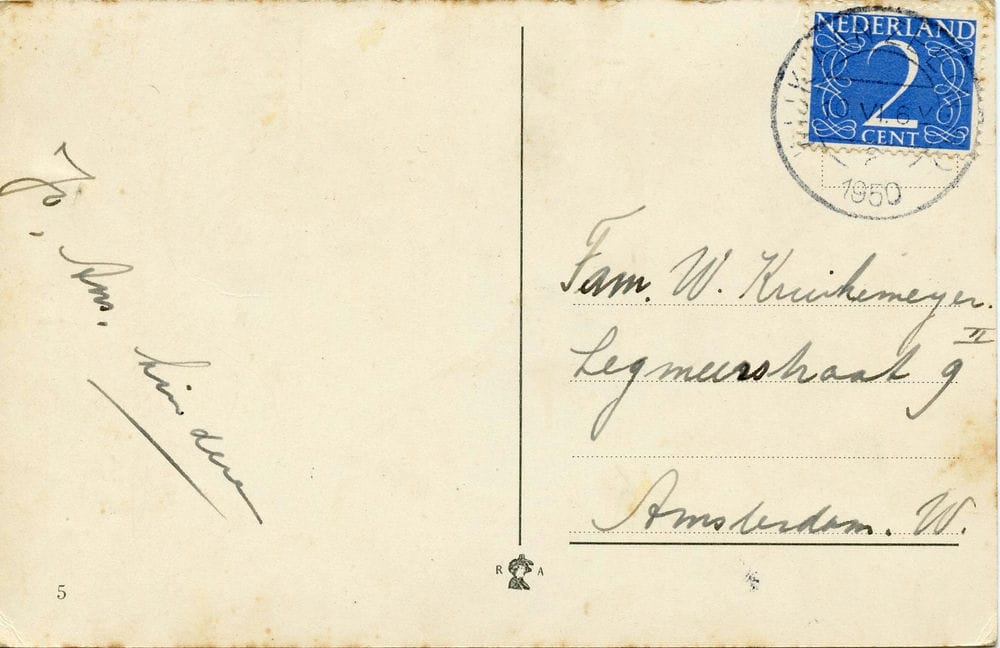 Jo, Ans.
kinderen
5
R A
NEDERLAND
2
CENT
1950
Fam. W. Kruikemeyer.
Legmeerstraat 9 II
Amsterdam. W.